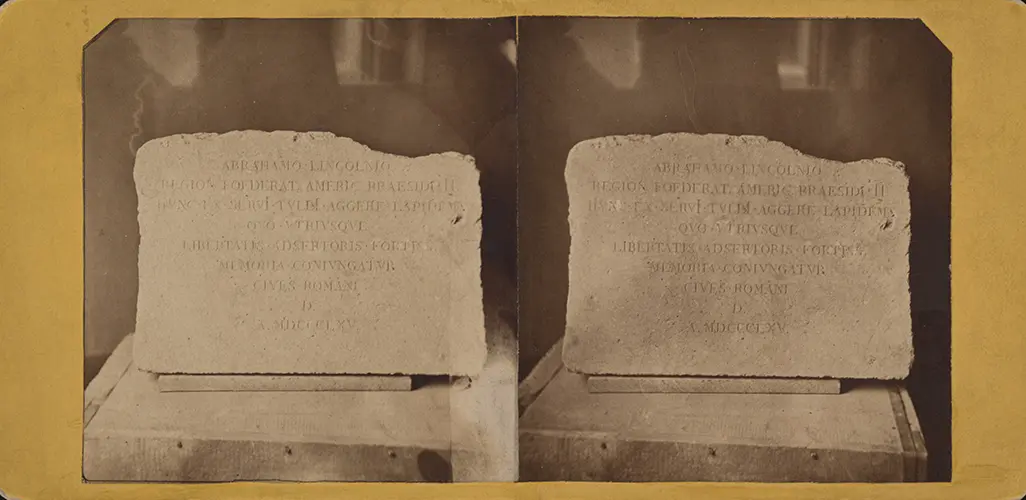 ABRAHAMO·LINCOLNIO
REGION·FOEDERAT·AMERIC·PRAESIDI·II
HVNC·EX·SERVI·TVLLI·AGGERE·LAPIDEM
QVO·VTRIVSQVE
LIBERTATIS·ADSERTORIS·FORTISS
MEMORIA·CONIVNGATVR
CIVES·ROMANI
D.
A.MDCCCLXV
ABRAHAMO·LINCOLNIO
REGION·FOEDERAT·AMERIC·PRAESIDI·II
HVNC·EX·SERVI·TVLLI·AGGERE·LAPIDEM
QVO·VTRIVSQVE
LIBERTATIS·ADSERTORIS·FORTISS
MEMORIA·CONIVNGATVR
CIVES·ROMANI
D.
A.MDCCCLXV